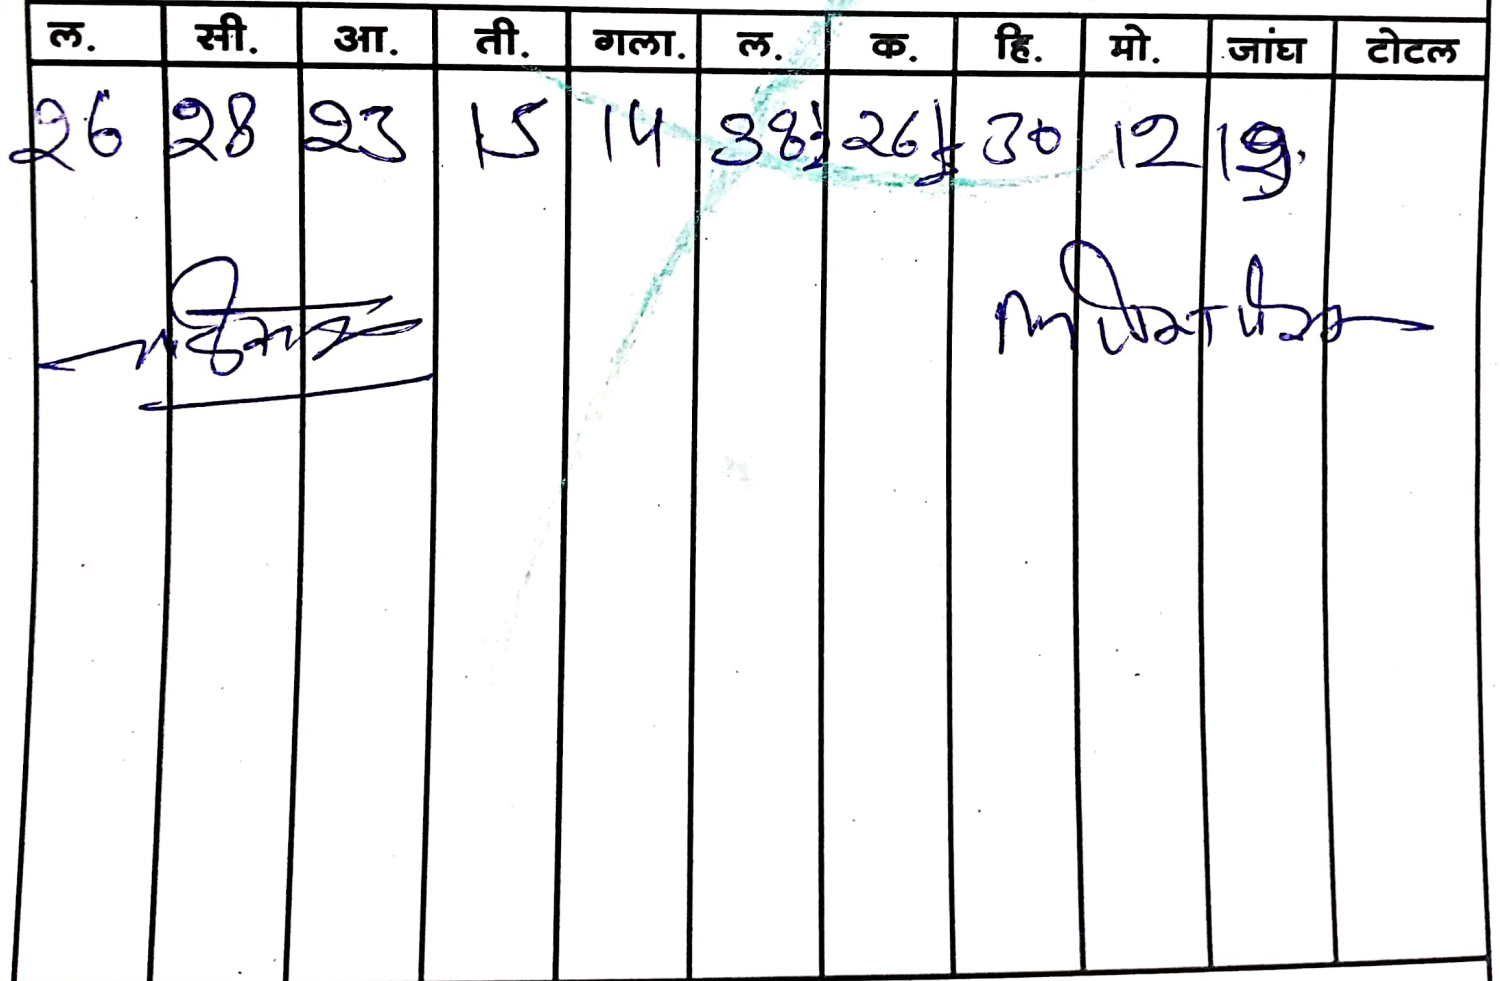 ल. सी. आ. ती. गला. ल. क. हि. मो. जांघ टोटल
26 28 23 15 14 38½ 26½ 30 12 19